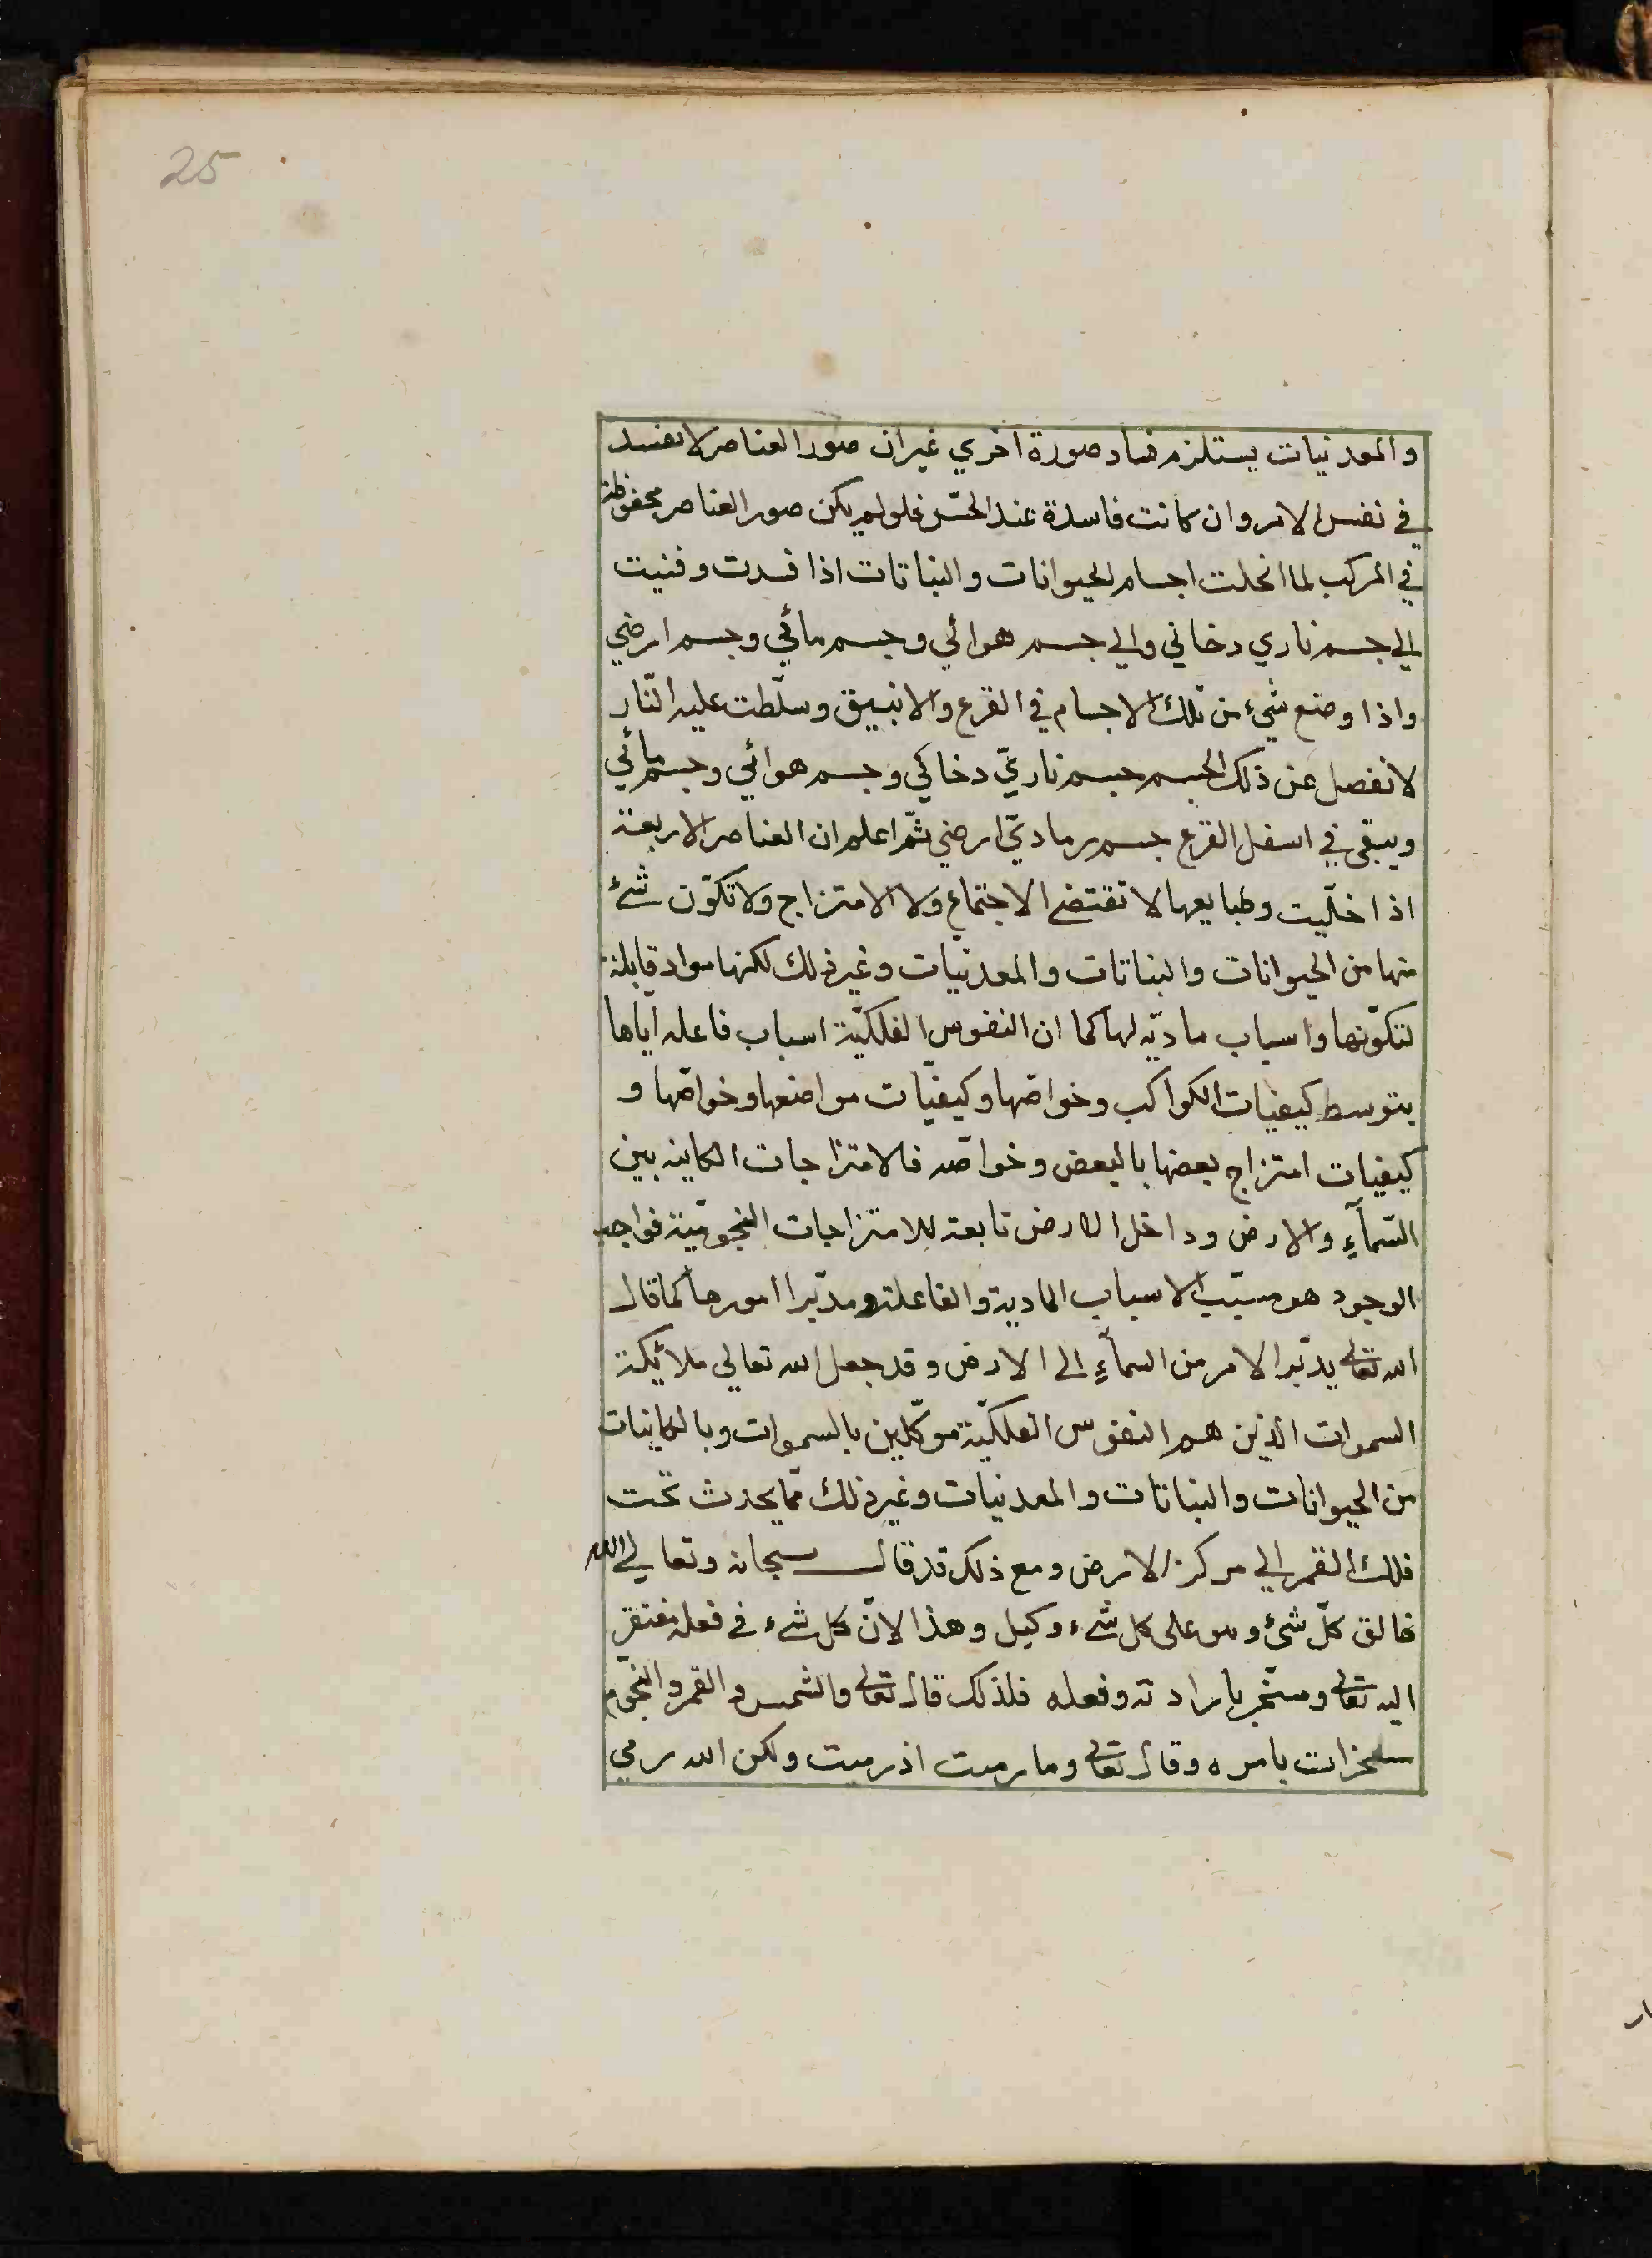 25
والمعدنيات يستلزم فساد صورة اخري غير ان صور العناصر لا تفسد
في نفس الامر وان كانت فاسدة عند الحسّ فلو لم يكن صور العناصر محفوظة
في المركب لما انحلت اجسام الحيوانات والنباتات اذا فسدت وفنيت
الي جسم ناري دخاني والي جسم هوائي وجسم مائي وجسم ارضي
واذا وضع شيء من تلك الاجسام في القرع والانبيق وسلّطت عليه النّار
لانفصل عن ذلك الجسم جسم ناريّ دخاني وجسم هوائي وجسم مائي
ويبقي في اسفل القرع جسم رماديّ ارضي ثمّ اعلم ان العناصر الاربعة
اذا خلّيت وطبايعها لا تقتضي الاجتماع ولا الامتزاج ولا تكوّن شئ
منها من الحيوانات والنباتات والمعدنيات وغير ذلك لكنها مواد قابلة
لتكوّنها واسباب ماديّه لها كما ان النفوس الفلكيّة اسباب فاعله ايّاها
بتوسط كيفيات الكواكب وخواصّها وكيفيّات مواضعها وخواصّها و
كيفيات امتزاج بعضها بالبعض وخواصّه فالامتزاجات الكاينه بين
السّمآءِ والارض وداخل الارض تابعة للامتزاجات النجوميّة فواجب
الوجود هو مسبّب الاسباب الماديه والفاعلة ومدبّرا امورها كما قال
الله تعالى يدبّر الامر من السمآءِ الى الارض وقد جعل الله تعالي ملائكة
السموات الذين هم النفوس الفلكيّة موكّلين بالسموات وبالكاينات
من الحيوانات والنباتات والمعدنيات وغير ذلك ممّا يحدث تحت
فلك القمر الي مركز الارض ومع ذلك قد قال سبحانه وتعالى الله
خالق كلّ شئ وهو على كل شيء وكيل وهذا لانّ كل شيء في فعله مفتقر
اليه تعالى ومسخّر بارادته وفعله فلذلك قال تعالى والشمس والقمر والنجوم
مسخرات بامره وقال تعالى وما رميت اذ رميت ولكن الله رمي